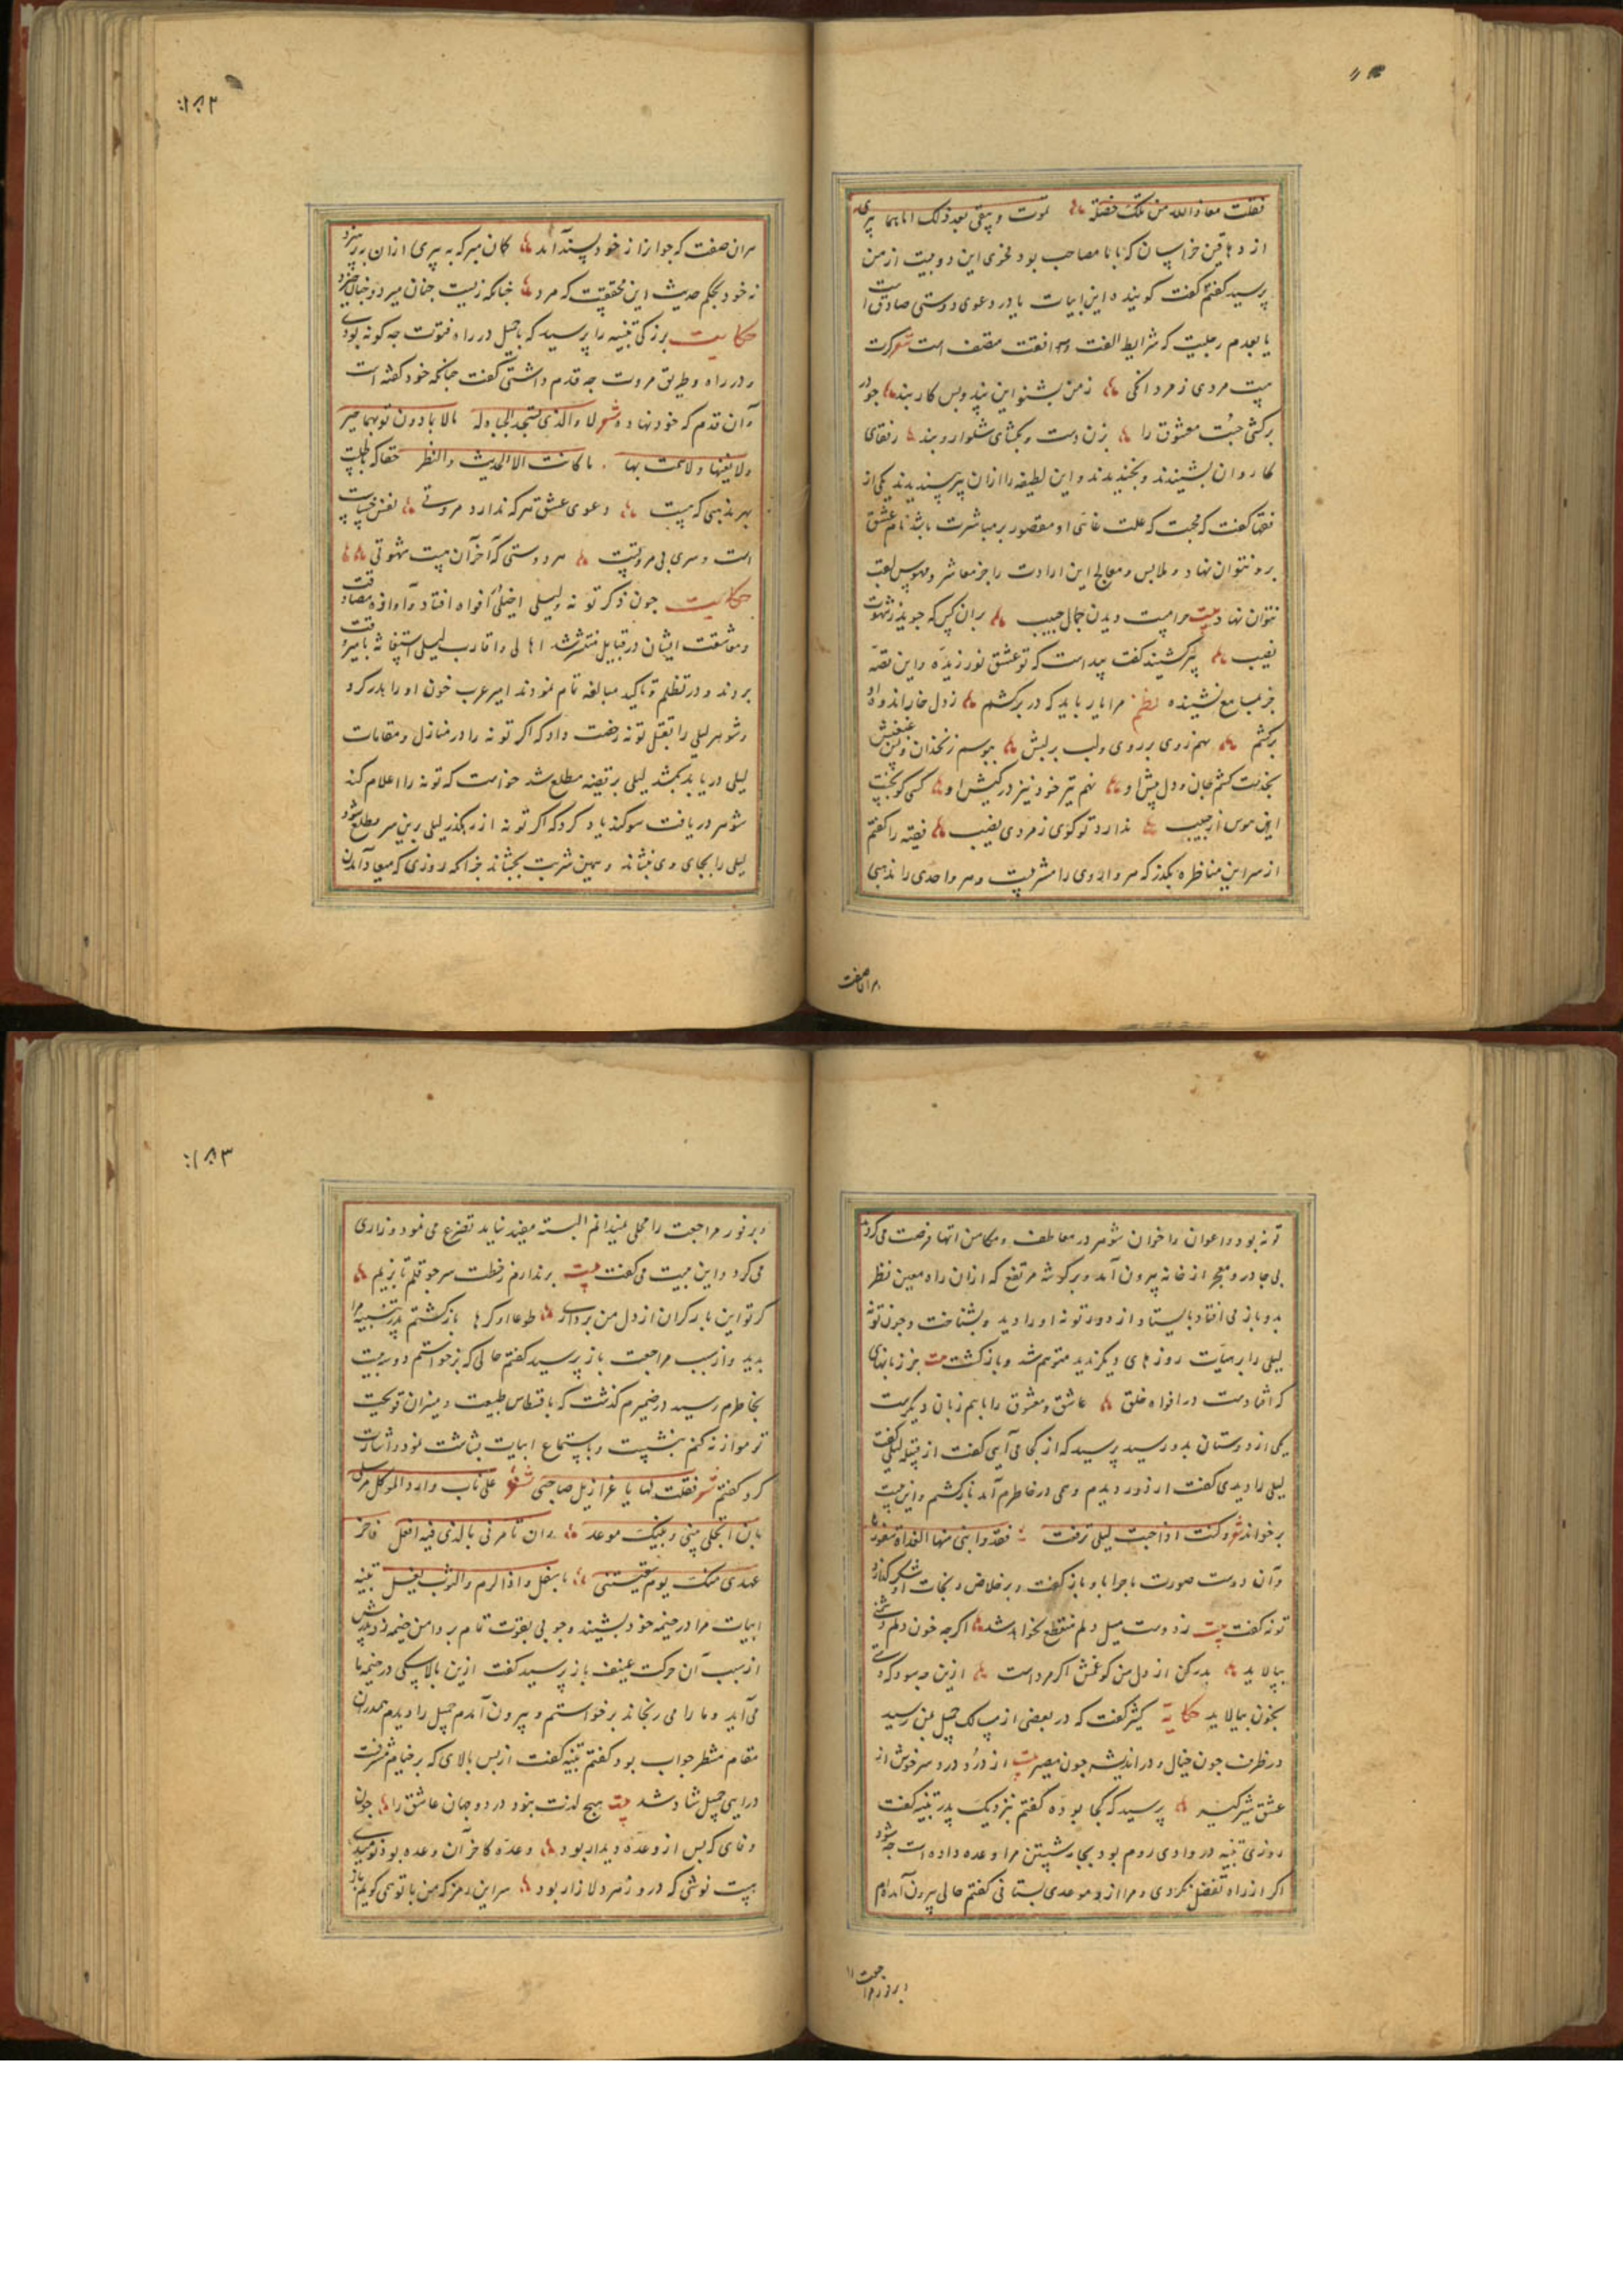 فقلت معاذ الله من تلک خصلة تموت و یبقی بعد ذلک
از دهاقین خراسان که با ما مصاحب بود فحوی این دو بیت از من
پرسید گفتم گفت گوینده این ابیات یا در دعوی دوستی صادق است
یا بعدم رجلیت که شرایط الفت و موافقت متصف است شعر کرت
بیت مردی ز مردانگی ز من بشنو این پند و بس کار بند چو در
برکشی معشوق را بزن دست و بکشای شلوار و بند رفقای
کاروان بشنیدند و بخندیدند و این لطیفه را از ان پیر پسندیدند یکی از
فقها گفت که محبت که علت غائی او مقصور بر مباشرت باشد نام عشق
برو نتوان نهاد و ملابس و معالج این ارادت را جز معاشر و مهوس لقب
نتوان نهاد بیت مرا هست دیدن جمال حبیب بران کس که جوید ز شهوت
نصیب پیر بشنید گفت پیداست که تو عشق نورزیده و این قصه
جز بسامع نشنیده نظم مرا یار باید که در برکشم ز دل خار اندوه او
برکشم نهم روی بر روی و لب بر لبش ببوسم زنخدان و غبغبش
بخدمت کشم جان و دل پیش او نهم تیر خود نیز در کیش او کسی کو نجست
این هوس از حبیب ندارد تو گوی ز مردی نصیب فقیه را گفتم
از سر این مناظره بگذر که هر واردی را مشربیست و هر واحدی را مذهبی
بران صفت
۱۸۲
بران صفت که جوانرا ز خود پسند آید کمان مبر که به پیری از ان بپرهیزد
نه خود بحکم حدیث این محققست که مرد چنانکه زیست چنان میرد و چنان خیزد
حکایت بزرگی بثینه را پرسید که با جمیل در راه فتوت چه گونه بودی
و در راه و طریق مروت چه قدم داشتی گفت چنانکه خود گفته است
و آن قدم که خود نهاده شعر لا والذی تسجد الجباه له مالا بادون ثوبها خبر
ولا بفیها ولا هممت بها ما کانت الا الحدیث والنظر حقا که طلبت
بهر مذهبی که هست دعوی عشق هر که ندارد مروتی نفس خسیس
است و سری بی مروتیست هر دوستی که آخر آن هست شهوتی
حکایت چون ذکر توبه و لیلی اخیلی بافواه افتاد و آوازه مصادقت
و معاشقت ایشان در قبایل منتشر شد اهالی و اقارب لیلی استغاثه بامیر وقت
بردند و در تظلم و تاکید مبالغه تام نمودند امیر عرب خون او را هدر کرد
و شوهر لیلی را بقتل توبه رخصت داد که اگر توبه را در منازل و مقامات
لیلی دریابد بکشد لیلی بر قضیه مطلع شد خواست که توبه را اعلام کند
شوهر دریافت سوکند یاد کرد که اگر توبه از رهگذر لیلی برین سر مطلع شود
لیلی را بجای وی بنشاند و همین شربت بچشاند چرا که روزی که میعاد آمدن
توبه بود و اعوان را خوان شوهر در معاطف و مکامن انتهاز فرصت می کردند
بی چادر و معجر از خانه بیرون آمد و بر گوشه مرتفع که از ان راه معین نظر
بدو باز می افتاد بایستاد از دور توبه او را دید و بشناخت و چون توبه
لیلی را بر هیأت روزهای دیگر ندید متوهم شد و باز گشت بیت جز زبانهای
که افتادست در افواه خلق عاشق و معشوق را با هم زبان دیگرست
یکی از دوستان بدو رسید پرسید که از کجا می آیی گفت از قبیله لیلی گفت
لیلی را دیدی گفت از دور دیدم وهمی در خاطرم آمد باز گشتم و این بیت
برخواند شعر و کنت اذا جئت لیلی تبرقعت فقد رابنی منها الغداة سفورها
و آن دوست صورت ماجرا با او باز گفت و بر خلاص و نجات او شکر گذارد
توبه گفت بیت ز دوست میل دلم منقطع نخواهد شد اگر چه خون دلم دشمنی
بپالاید بدر کن از دل من کو غمش اگر مردست ازین چه سود که دستی
بخون بیالاید حکایة کثیر گفت که در بعضی از مسالک جمیل بمن رسید
در نظرت چون خیال و در اندیشه چون مصیر بیت از دور درد سر خوش از
عشق شیر گیر پرسید که کجا بوده گفتم بنزدیک پدر بثینه گفت
روزی بثینه در وادی روم بود بجامه شستن مرا وعده داده است چه شود
اگر از راه تفضل بگردی و مرا ازو موعدی بستانی گفتم حالی بیرون آمده ام
و بر فور مراجعت
۱۸۳
و بر فور مراجعت را محلی نمیدانم البته مفید نیاید تضرع می نمود و زاری
می کرد و این بیت می گفت بیت بر ندارم ز خطت سر چو قلم تا بزیم
گر تو این بار گران از دل من برداری طوعا او کرها باز گشتم پدر بثینه مرا
بدید و از سبب مراجعت باز پرسید گفتم حالی که برخواستم دو سه بیت
بخاطرم رسید در ضمیرم گذشت که با قسطاس طبیعت و میزان قریحت
تو موازنه کنم بنشست و باستماع ابیات بشاشت نمود و اشارت
کرد گفتم شعر فقلت لها یا عز ارسل صاحبی علی باب دارک والموکل مرسل
بان تجعلی بینی و بینک موعدا و ان تامرنی بالذی فیه افعل و آخر
عهدی منک یوم لقیتنی باسفل وادی الروم والثوب یغسل بثینه
ابیات مرا در خیمه خود بشنید و چوبی بقوت تمام بر دامن خیمه زد پدرش
از سبب آن حرکت عنیف باز پرسید گفت ازین بالا سگی در خیمه ما
می آید و ما را می رنجاند برخواستم و بیرون آمدم جمیل را دیدم همدران
مقام منتظر جواب بود گفتم بثینه گفت از پس بالای که بر خیامش مشرفست
درایی جمیل شاد شد بیت هیچ لذت نبود در دو جهان عاشق را چون
وفای که پس از وعده دیدار بود وعده کاخر آن وعده بود نومیدی
هست نوشی که درو زهر دلازار بود سر این رمز که من با تو همی گویم باز